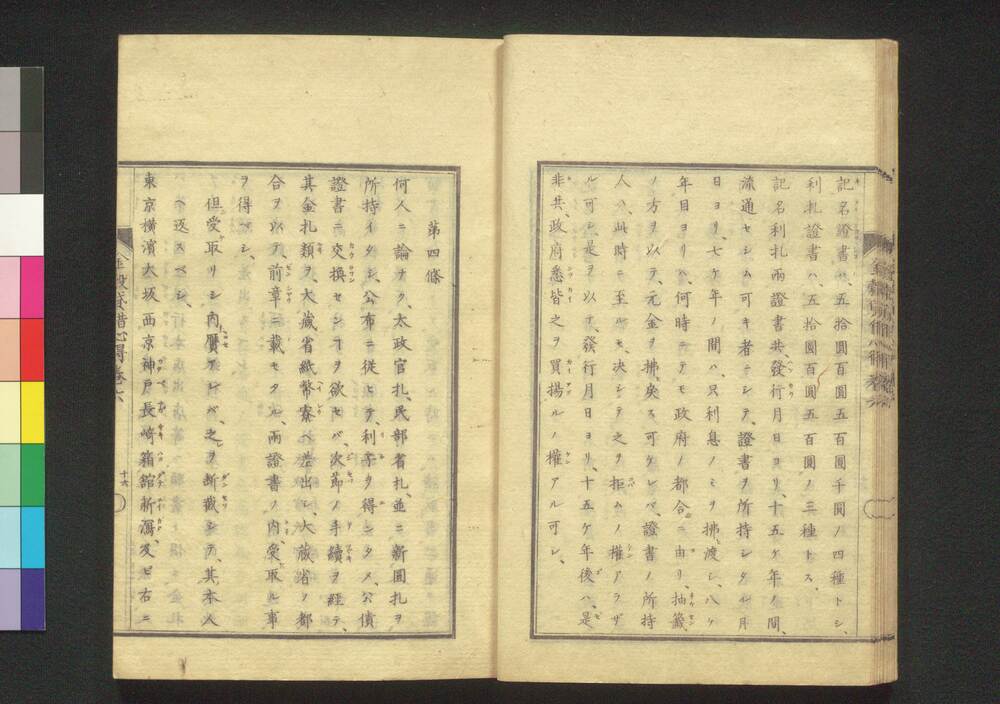 記名證書ハ、五拾圓百圓五百圓千圓ノ四種トシ、
利札證書ハ、五拾圓百圓五百圓ノ三種トス、
記名利札兩證書共、發行月日ヨリ、十五ケ年ノ間、
流通セシム可キ者ニシテ、證書ヲ所持シタル月
日ヨリ、七ケ年ノ間ハ、只利息ノミヲ拂渡シ、八ケ
年目ヨリハ、何時ニテモ政府ノ都合ニ由リ、抽籤
ノ方ヲ以テ、元金ヲ拂戾ス可ケレバ、證書ノ所持
人ハ、此時ニ至ルモ、決シテ之ヲ拒ムノ權アラザ
ル可シ、是ヲ以テ、發行月日ヨリ、十五ケ年後ハ、是
非共、政府悉皆之ヲ買揚ルノ權アル可シ、
第四條
何人ニ論ナク、太政官札、民部省札、並ニ新圓札ヲ
所持イタシ、公布ニ從ヒテ、利子ヲ得ンタメ、公債
證書ニ交換セシヿヲ欲セバ、次節ノ手續ヲ經テ、
其金札類ヲ、大藏省紙幣寮ヘ差出シ、大藏省ノ都
合ヲ以テ、前章ニ載セタル、兩證書ノ内受取ル事
ヲ得ベシ、
但受取リシ内贋アレバ、之ヲ斷裁シテ、其本人
ヘ返スベシ、
東京橫濱大坂西京神戸長崎箱館新潟及ビ右ニ
十六